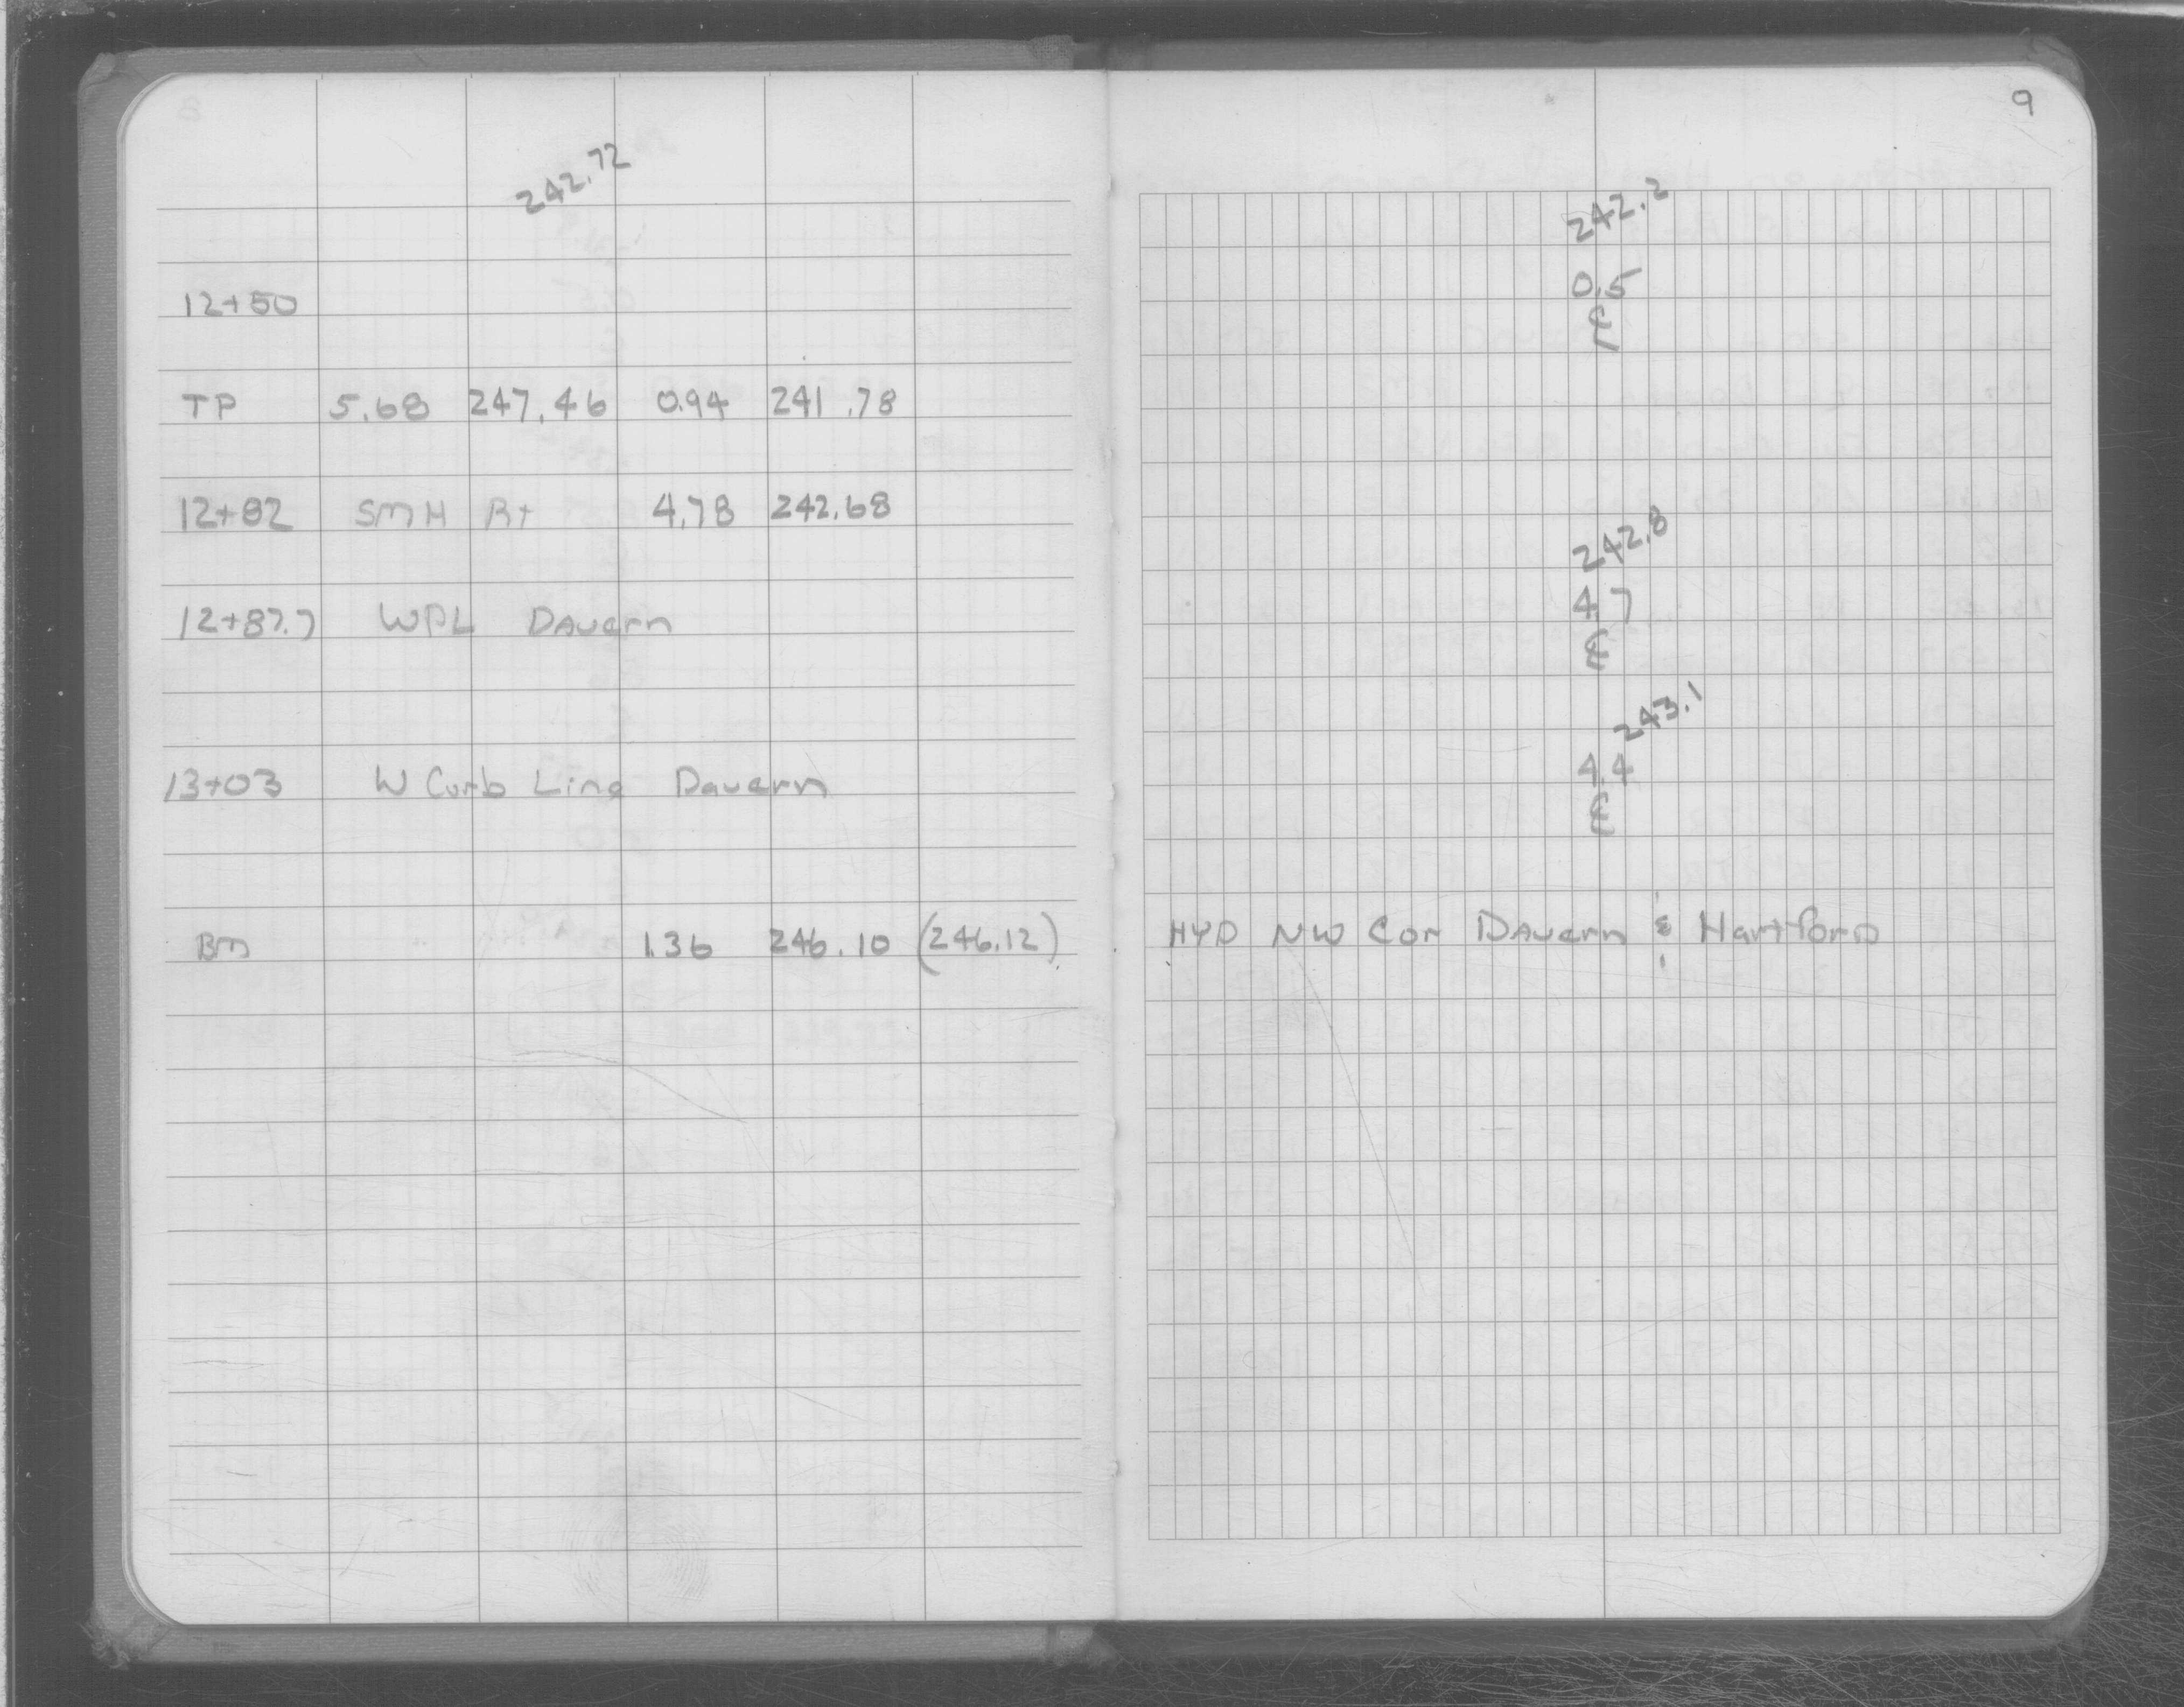 9
242.72
242.2
12+50 0.5
℄
TP 5.68 247.46 0.94 241.78
12+82 SMH Rt 4.78 242.68
242.8
12+87.7 WPL Davern 4.7
℄
243.1
13+03 W Curb Line Davern 4.4
℄
BM 1.36 246.10 (246.12) HYD NW Cor Davern & Hartford